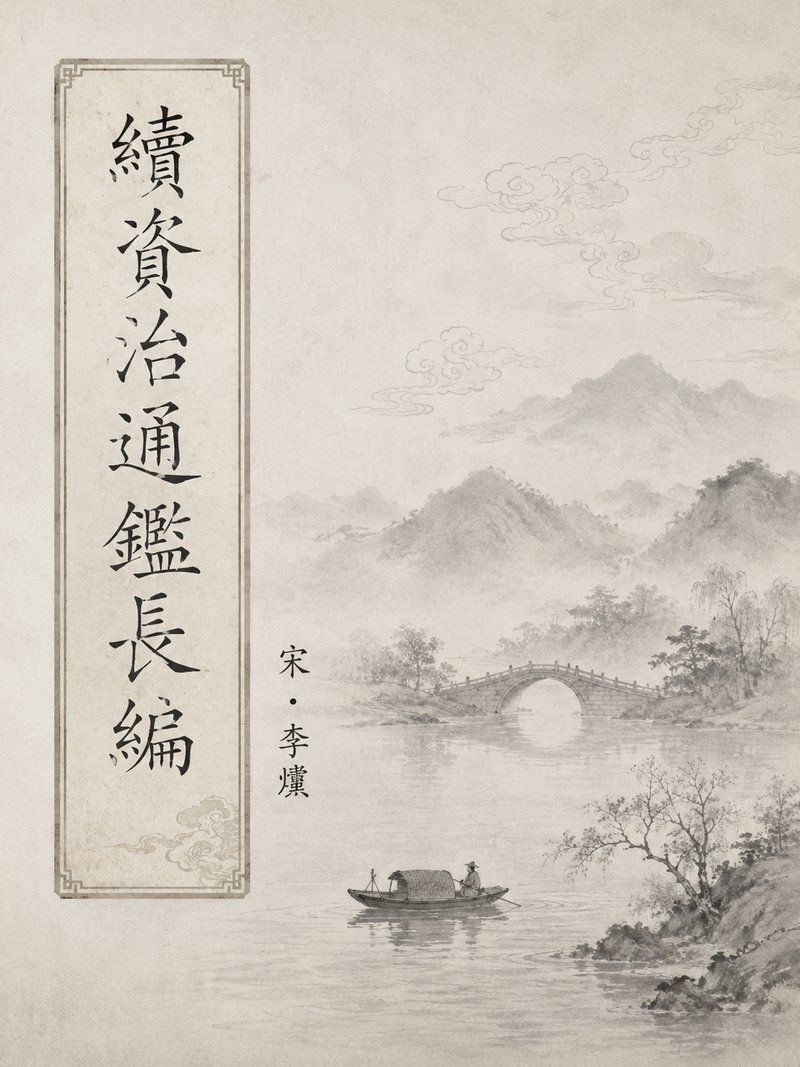 續資治通鑑長編
宋·李燾